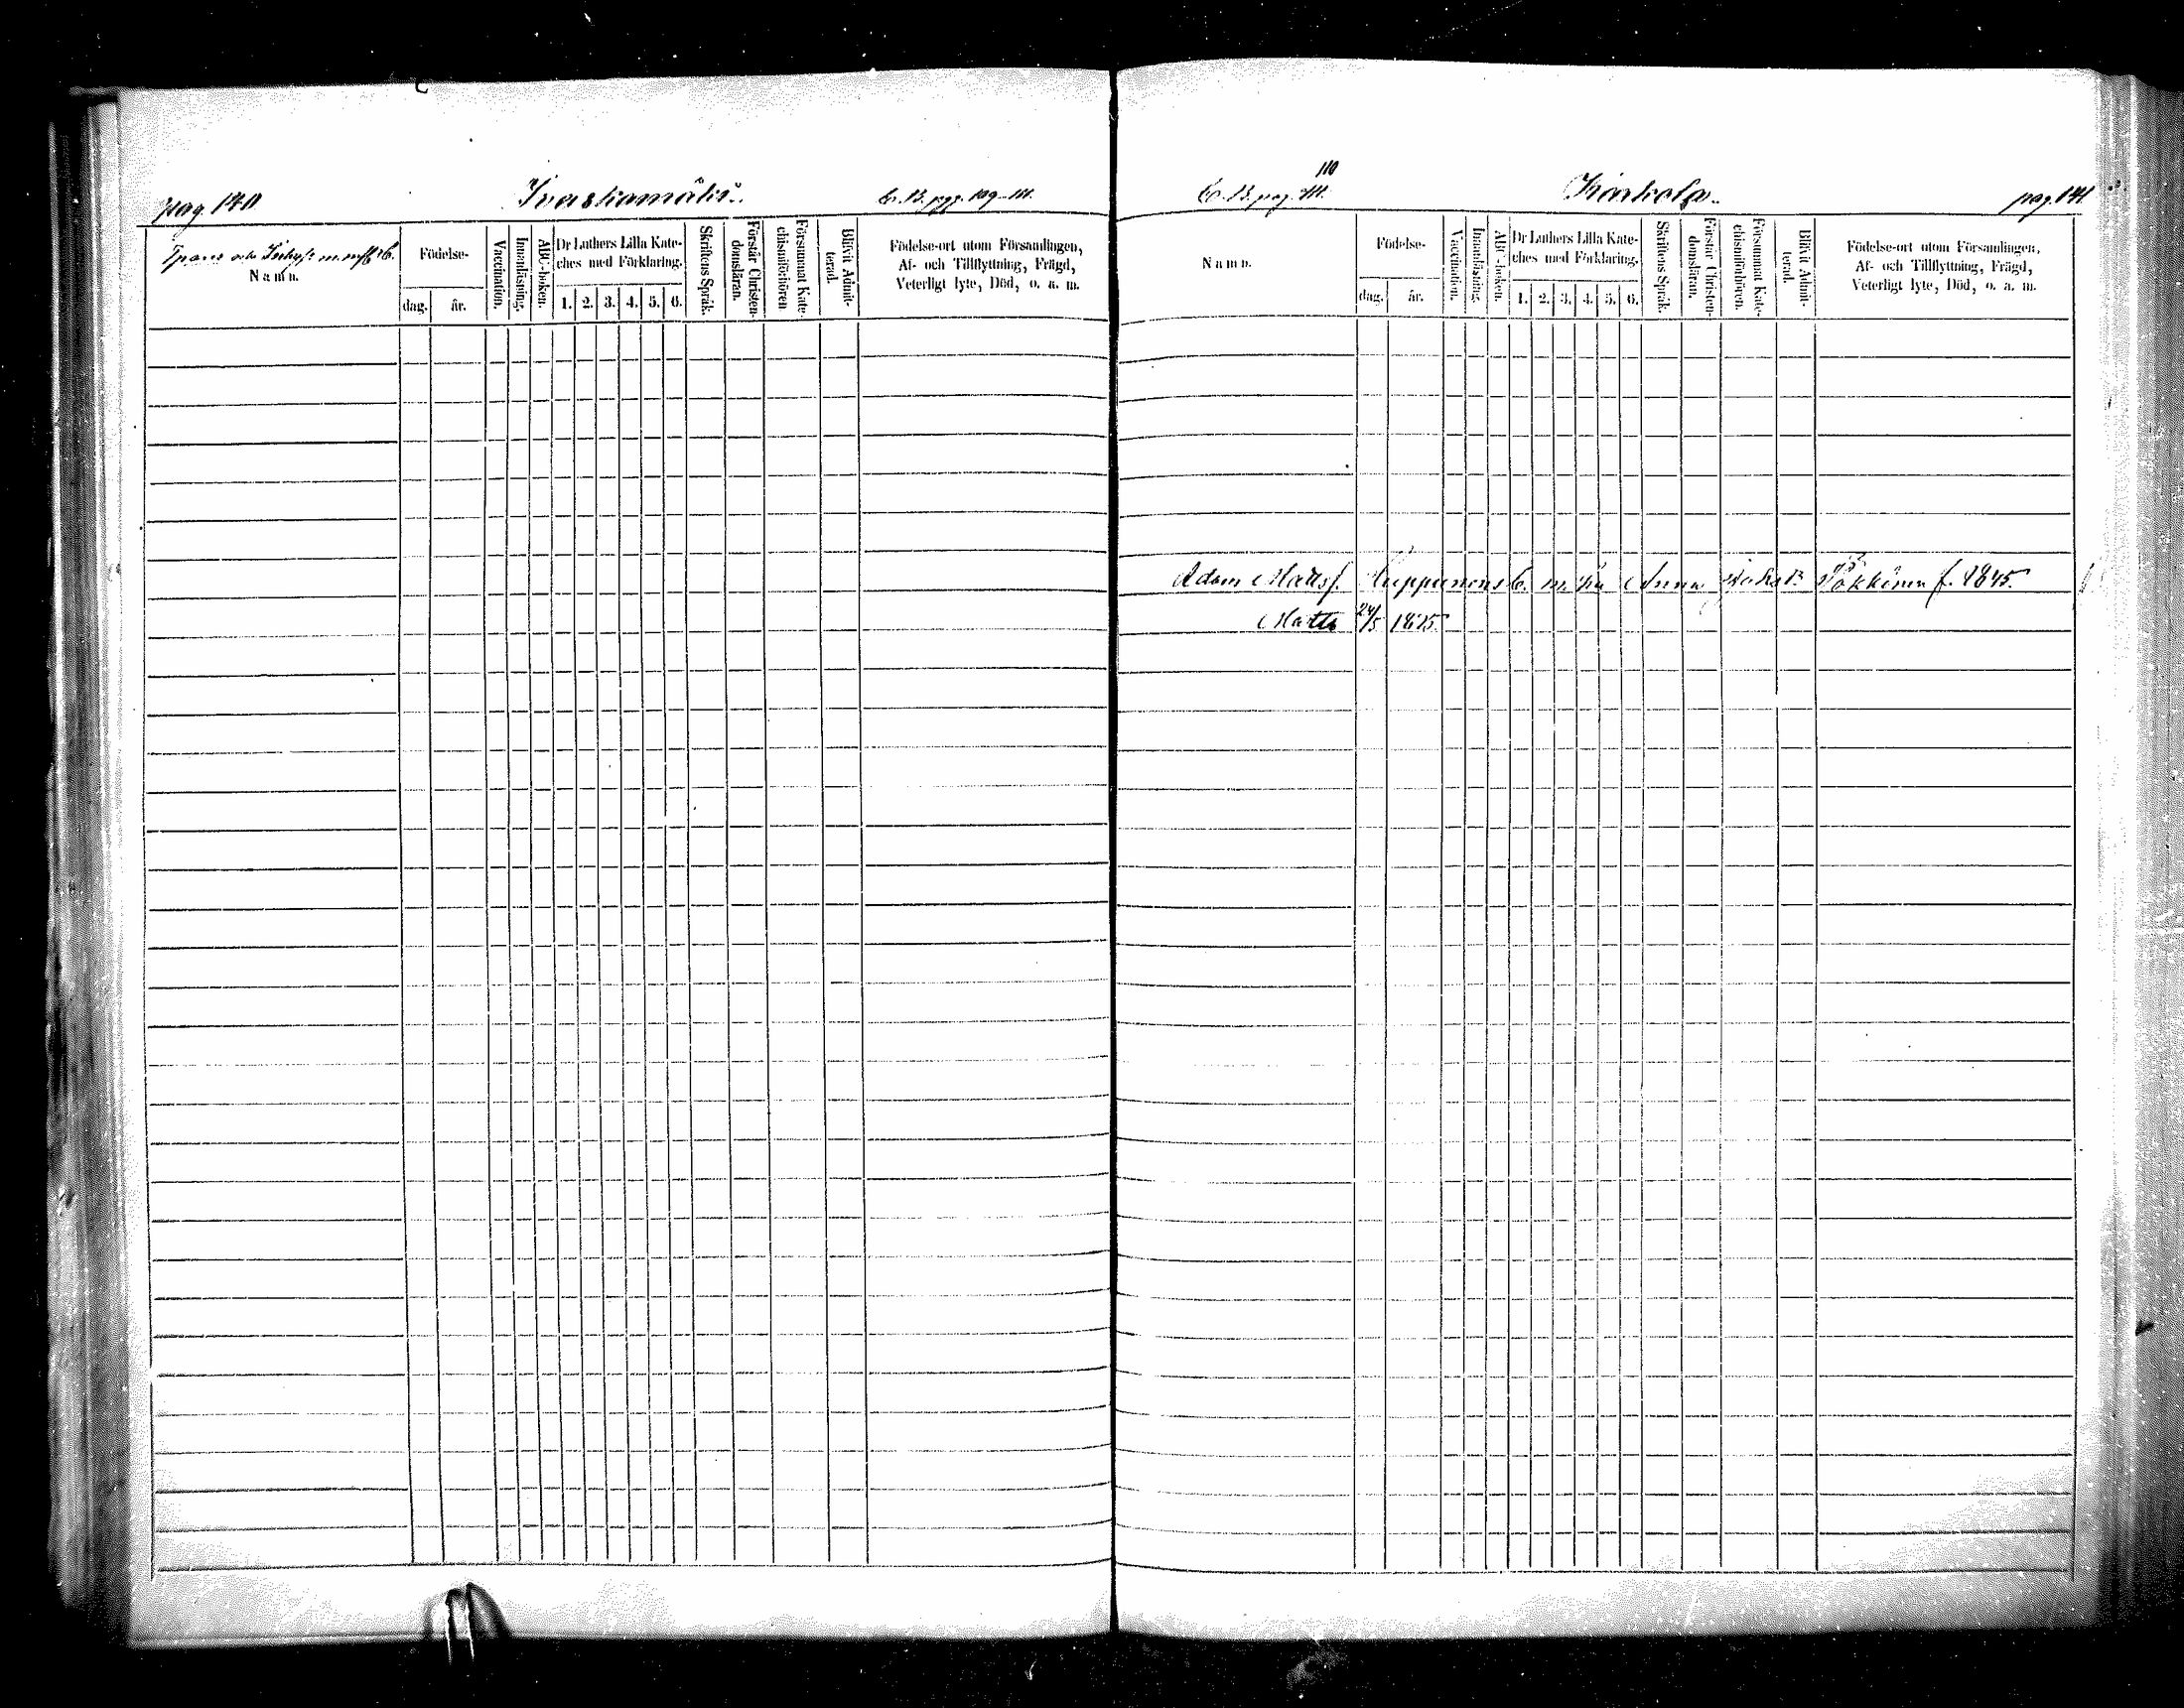 pag. 140.
Ivaskamäki.
C. B. pgg. 109-111.
Namn.
Födelse-
dag.
år.
Vaccination.
Innanläsning.
ABC-boken.
Dr Luthers Lilla Kate-
ches med Förklaring.
1. 2. 3. 4. 5. 6.
Skriftens Språk.
Förstår Christen-
domsläran.
Försummat Kate-
chismiförhören
Blifvit Admit-
terad.
Födelse-ort utom Församlingen,
Af- och Tillflyttning, Frägd,
Veterligt lyte, Död, o. a. m.
110
C. B. pag. 111.
Karkola.
pag. 141.
Namn.
Födelse-
dag.
år.
Vaccination.
Innanläsning.
ABC-boken.
Dr Luthers Lilla Kate-
ches med Förklaring.
1. 2. 3. 4. 5. 6.
Skriftens Språk.
Förstår Christen-
domsläran.
Försummat Kate-
chismiförhören.
Blifvit Admit-
terad.
Födelse-ort utom Församlingen,
Af- och Tillflyttning, Frägd,
Veterligt lyte, Död, o. a. m.
Adam Mattsf. Huppunens b. m. hu Anna f. 1845.
Matts 24/5 1875.